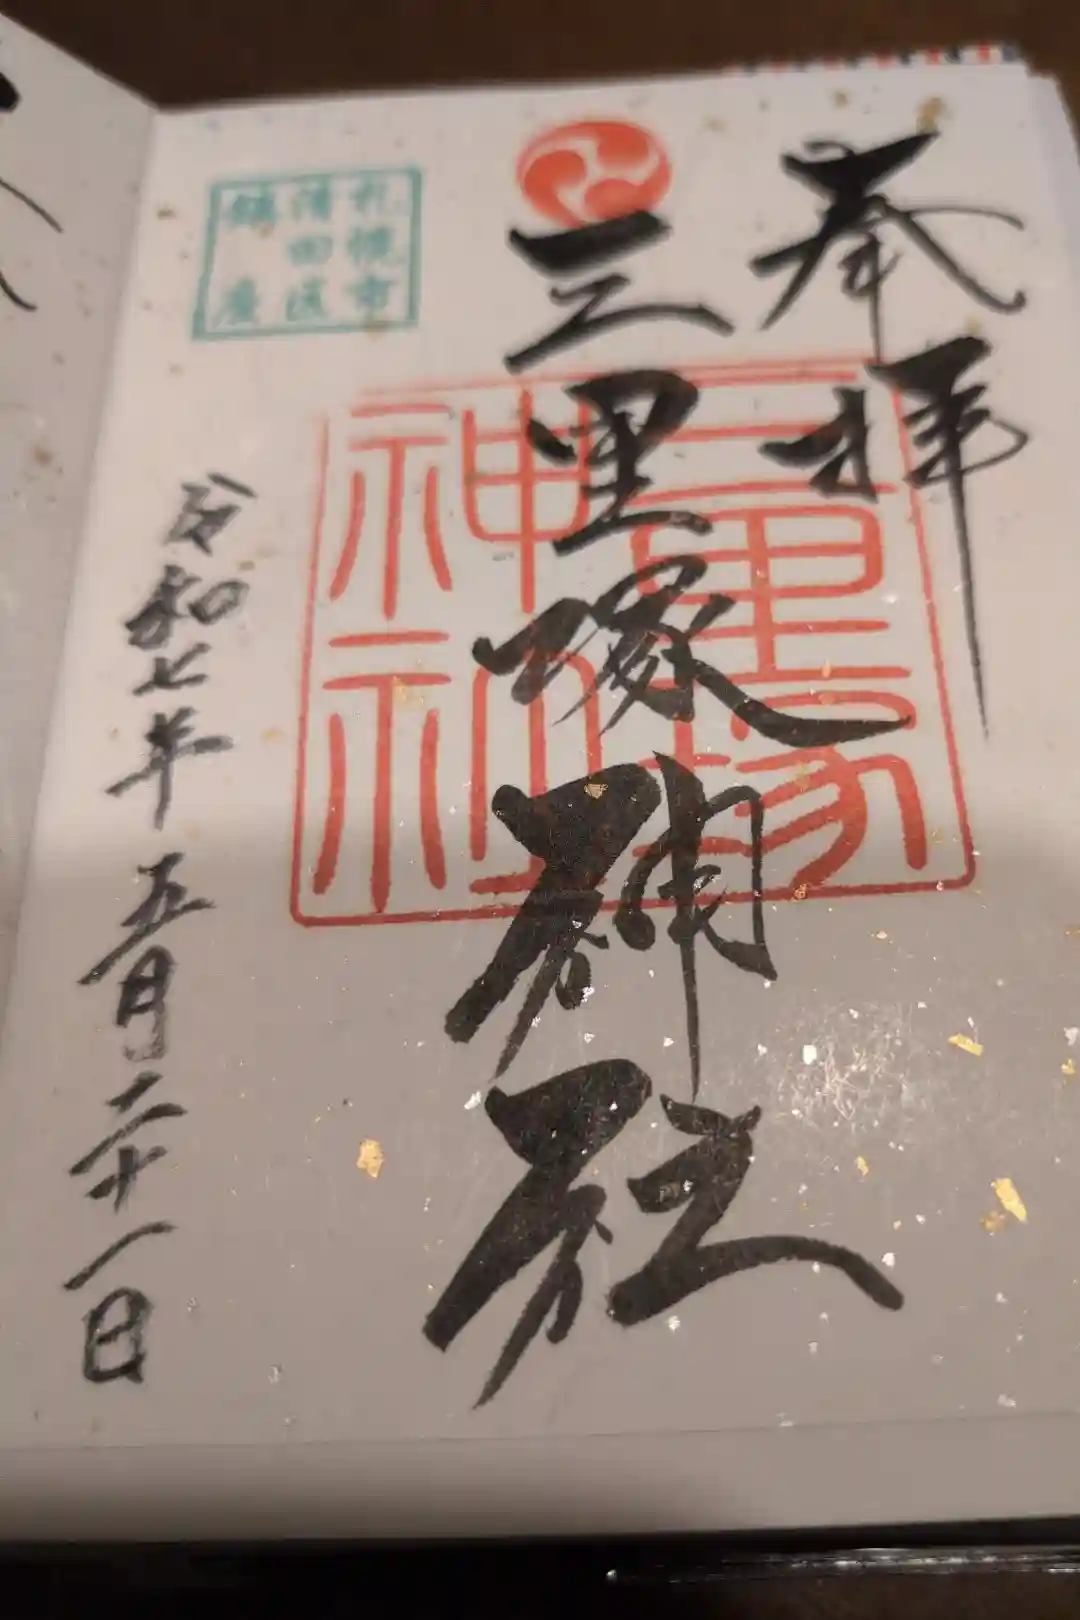 奉拝
三里塚神社
三里塚
神社
札幌市
清田区
鎮座
令和七年五月二十一日